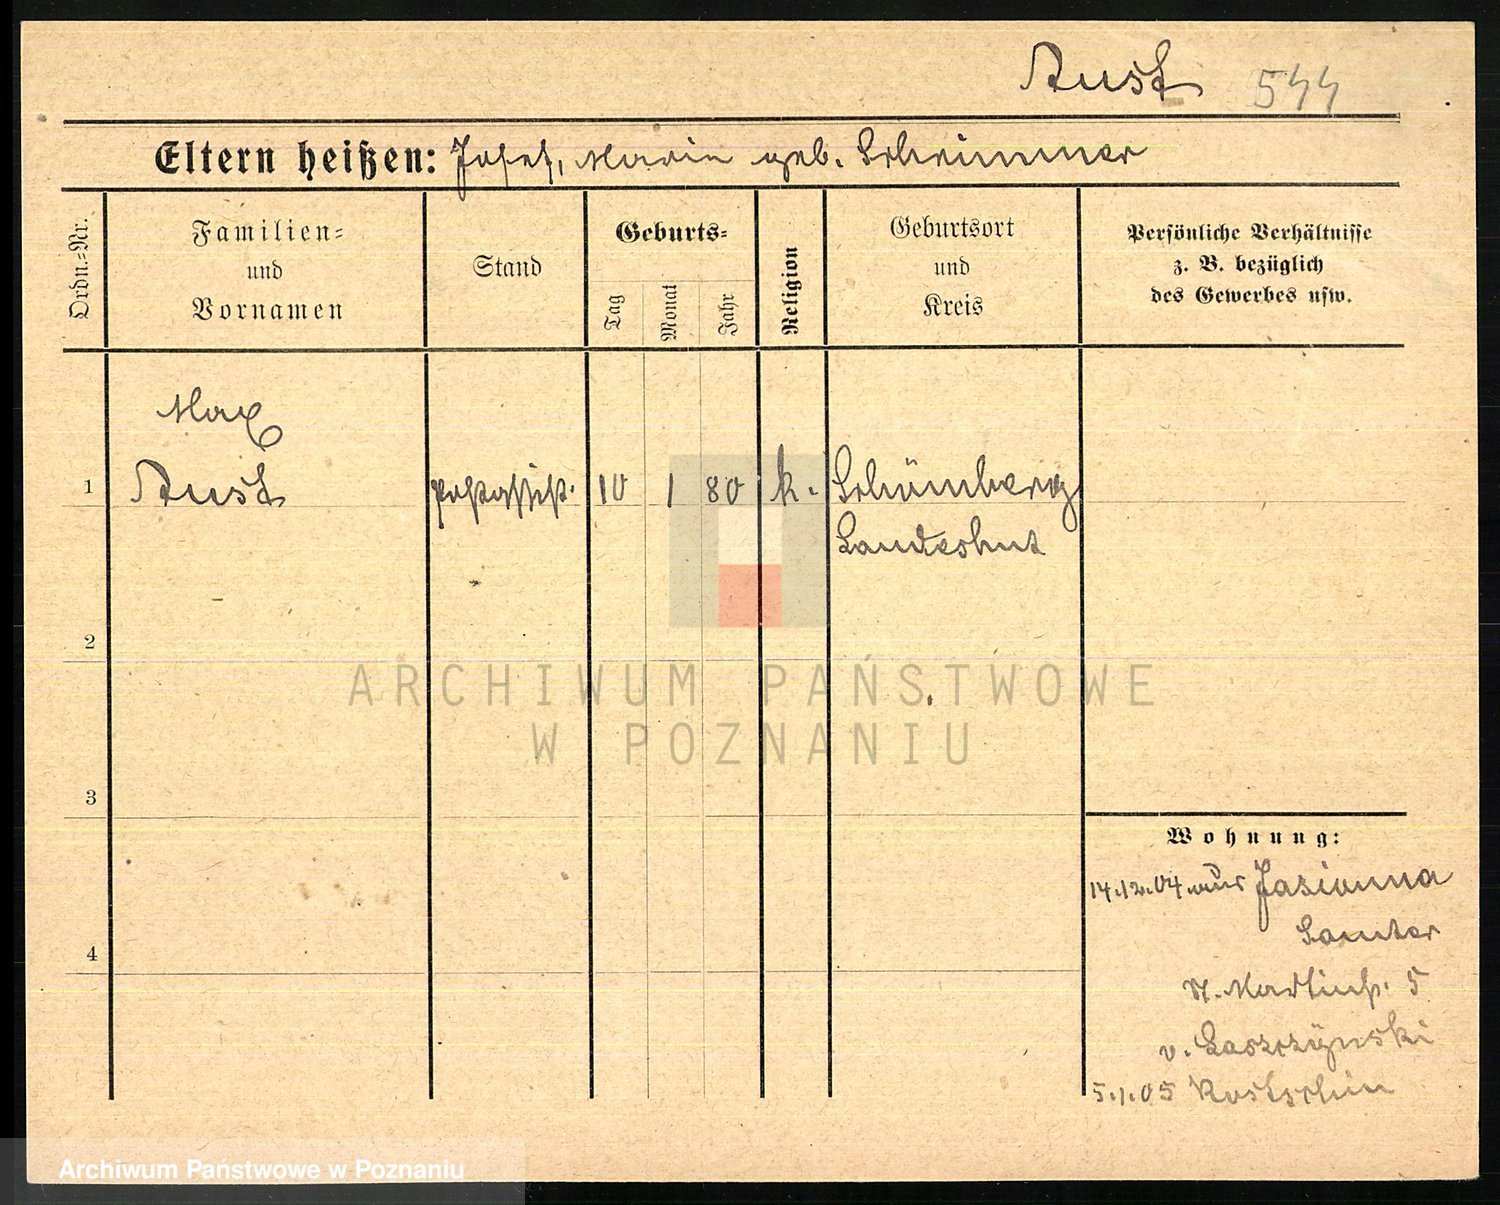 Aust 544
Eltern heißen: Josef, Marie geb. Schrimmer
Ordn.-Nr.
Familien-
und
Vornamen
Stand
Geburts-
Tag
Monat
Jahr
Religion
Geburtsort
und
Kreis
Persönliche Verhältnisse
z. B. bezüglich
des Gewerbes usw.
Max
1 Aust Postassist. 10 1 80 k. Schömberg
Landeshut
2
3
4
Wohnung:
14.12.04 aus
Samter
St. Martinstr. 5
v. Laszczynski
5.1.05 Kostschin
ARCHIWUM PAŃSTWOWE
W POZNANIU
Archiwum Państwowe w Poznaniu